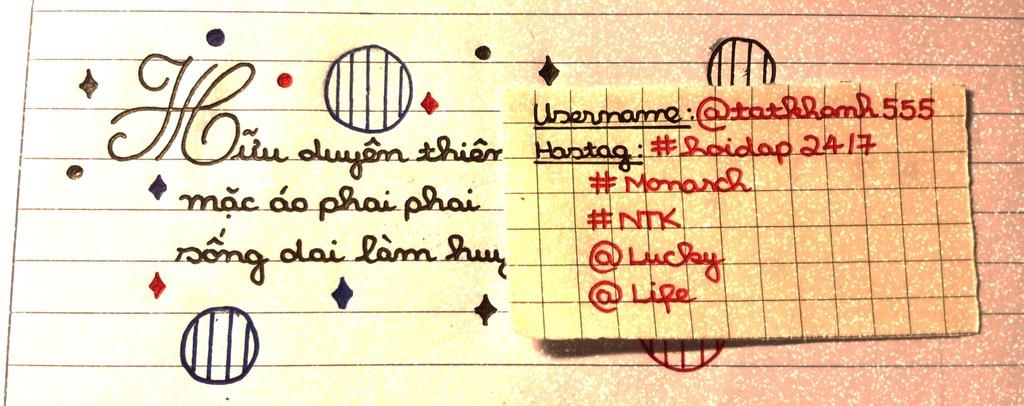 Hữu duyên thiên
mặc áo phai phai
sống dai làm huy
Username: @tatkhanh555
Hastag: #hoidap 24/7
#Monarch
#NTK
@Lucky
@Life